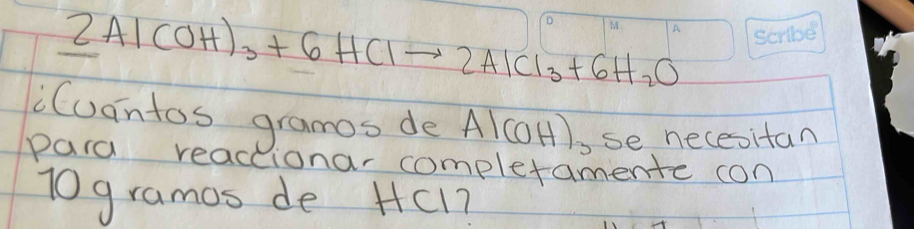 D M A Scribe
2Al(OH)₃ + 6HCl → 2AlCl₃ + 6H₂O
¿Cuántos gramos de Al(OH)₃ se necesitan
para reaccionar completamente con
10 gramos de HCl?